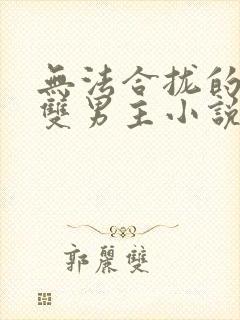 無法合拢的
雙男主小說
郭麗雙